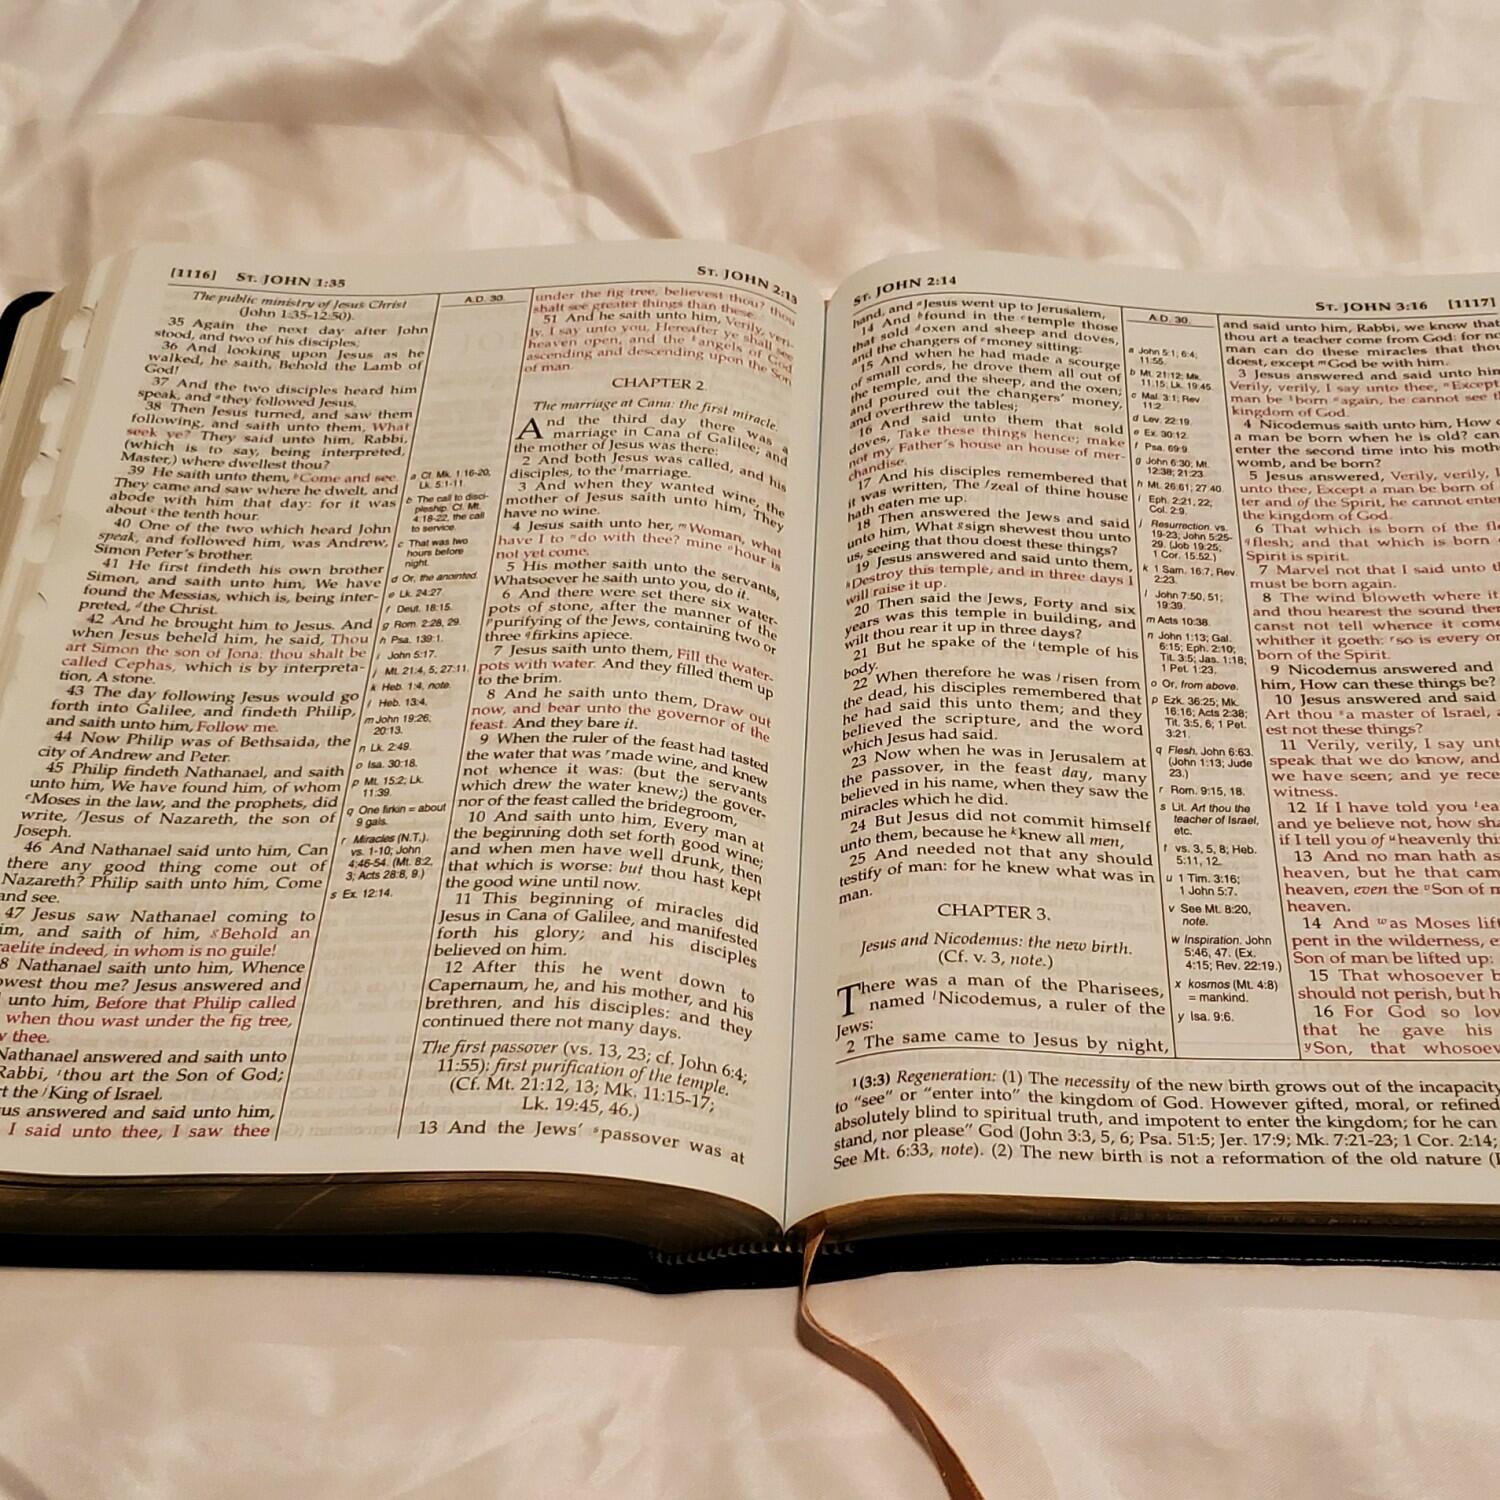 [1116] ST. JOHN 1:35
ST. JOHN 2:13
The public ministry of Jesus Christ
(John 1:35-12:50).
35 Again the next day after John
stood, and two of his disciples;
36 And looking upon Jesus as he
walked, he saith, Behold the Lamb of
God!
37 And the two disciples heard him
speak, and ᵃthey followed Jesus.
38 Then Jesus turned, and saw them
following, and saith unto them, What
seek ye? They said unto him, Rabbi,
(which is to say, being interpreted,
Master,) where dwellest thou?
39 He saith unto them, ᵇCome and see.
They came and saw where he dwelt, and
abode with him that day: for it was
about ᶜthe tenth hour.
40 One of the two which heard John
speak, and followed him, was Andrew,
Simon Peter's brother.
41 He first findeth his own brother
Simon, and saith unto him, We have
found the Messias, which is, being inter-
preted, ᵈthe Christ.
42 And he brought him to Jesus. And
when Jesus beheld him, he said, Thou
art Simon the son of Jona: thou shalt be
called Cephas, which is by interpreta-
tion, A stone.
43 The day following Jesus would go
forth into Galilee, and findeth Philip,
and saith unto him, Follow me.
44 Now Philip was of Bethsaida, the
city of Andrew and Peter.
45 Philip findeth Nathanael, and saith
unto him, We have found him, of whom
ᵉMoses in the law, and the prophets, did
write, ᶠJesus of Nazareth, the son of
Joseph.
46 And Nathanael said unto him, Can
there any good thing come out of
Nazareth? Philip saith unto him, Come
and see.
47 Jesus saw Nathanael coming to
im, and saith of him, ᵍBehold an
raelite indeed, in whom is no guile!
8 Nathanael saith unto him, Whence
owest thou me? Jesus answered and
unto him, Before that Philip called
when thou wast under the fig tree,
w thee.
Nathanael answered and saith unto
Rabbi, ⁱthou art the Son of God;
rt the ʲKing of Israel.
us answered and said unto him,
I said unto thee, I saw thee
A.D. 30.
a Cf. Mk. 1:16-20,
Lk. 5:1-11.
b The call to disci-
pleship. Cf. Mt.
4:18-22, the call
to service.
c That was two
hours before
night.
d Or, the anointed.
e Lk. 24:27.
f Deut. 18:15.
g Rom. 2:28, 29.
h Psa. 139:1.
i John 5:17.
j Mt. 21:4, 5; 27:11.
k Heb. 1:4, note.
l Heb. 13:4.
m John 19:26;
20:13.
n Lk. 2:49.
o Isa. 30:18.
p Mt. 15:2; Lk.
11:39.
q One firkin = about
9 gals.
r Miracles (N.T.).
vs. 1-10; John
4:46-54. (Mt. 8:2,
3; Acts 28:8, 9.)
s Ex. 12:14.
under the fig tree, believest thou? thou
shalt see greater things than these.
51 And he saith unto him, Verily, veri-
ly, I say unto you, Hereafter ye shall see
heaven open, and the ᵏangels of God
ascending and descending upon the Son
of man.
CHAPTER 2.
The marriage at Cana: the first miracle.
And the third day there was a
marriage in Cana of Galilee; and
the mother of Jesus was there:
2 And both Jesus was called, and his
disciples, to the ˡmarriage.
3 And when they wanted wine, the
mother of Jesus saith unto him, They
have no wine.
4 Jesus saith unto her, ᵐWoman, what
have I to ⁿdo with thee? mine ᵒhour is
not yet come.
5 His mother saith unto the servants,
Whatsoever he saith unto you, do it.
6 And there were set there six water-
pots of stone, after the manner of the
ᵖpurifying of the Jews, containing two or
three ᑫfirkins apiece.
7 Jesus saith unto them, Fill the water-
pots with water. And they filled them up
to the brim.
8 And he saith unto them, Draw out
now, and bear unto the governor of the
feast. And they bare it.
9 When the ruler of the feast had tasted
the water that was ʳmade wine, and knew
not whence it was: (but the servants
which drew the water knew;) the gover-
nor of the feast called the bridegroom,
10 And saith unto him, Every man at
the beginning doth set forth good wine;
and when men have well drunk, then
that which is worse: but thou hast kept
the good wine until now.
11 This beginning of miracles did
Jesus in Cana of Galilee, and manifested
forth his glory; and his disciples
believed on him.
12 After this he went down to
Capernaum, he, and his mother, and his
brethren, and his disciples: and they
continued there not many days.
The first passover (vs. 13, 23; cf. John 6:4;
11:55): first purification of the temple.
(Cf. Mt. 21:12, 13; Mk. 11:15-17;
Lk. 19:45, 46.)
13 And the Jews' ˢpassover was at
ST. JOHN 2:14
ST. JOHN 3:16 [1117]
hand, and ᵃJesus went up to Jerusalem,
14 And ᵇfound in the ᶜtemple those
that sold ᵈoxen and sheep and doves,
and the changers of ᵉmoney sitting:
15 And when he had made a scourge
of small cords, he drove them all out of
the temple, and the sheep, and the oxen;
and poured out the changers' money,
and overthrew the tables;
16 And said unto them that sold
doves, Take these things hence; make
not my Father's house an house of mer-
chandise.
17 And his disciples remembered that
it was written, The ᶠzeal of thine house
hath eaten me up.
18 Then answered the Jews and said
unto him, What ᵍsign shewest thou unto
us, seeing that thou doest these things?
19 Jesus answered and said unto them,
ʰDestroy this temple, and in three days I
will raise it up.
20 Then said the Jews, Forty and six
years was this temple in building, and
wilt thou rear it up in three days?
21 But he spake of the ⁱtemple of his
body.
22 When therefore he was ʲrisen from
the dead, his disciples remembered that
he had said this unto them; and they
believed the scripture, and the word
which Jesus had said.
23 Now when he was in Jerusalem at
the passover, in the feast day, many
believed in his name, when they saw the
miracles which he did.
24 But Jesus did not commit himself
unto them, because he ᵏknew all men,
25 And needed not that any should
testify of man: for he knew what was in
man.
CHAPTER 3.
Jesus and Nicodemus: the new birth.
(Cf. v. 3, note.)
There was a man of the Pharisees,
named ˡNicodemus, a ruler of the
Jews:
2 The same came to Jesus by night,
A.D. 30.
a John 5:1; 6:4;
11:55.
b Mt. 21:12; Mk.
11:15; Lk. 19:45.
c Mal. 3:1; Rev.
11:2.
d Lev. 22:19.
e Ex. 30:12.
f Psa. 69:9.
g John 6:30; Mt.
12:38; 21:23.
h Mt. 26:61; 27:40.
i Eph. 2:21, 22;
Col. 2:9.
j Resurrection. vs.
19-23; John 5:25-
29. (Job 19:25;
1 Cor. 15:52.)
k 1 Sam. 16:7, Rev.
2:23.
l John 7:50, 51;
19:39.
m Acts 10:38.
n John 1:13; Gal.
6:15; Eph. 2:10;
Tit. 3:5; Jas. 1:18;
1 Pet. 1:23.
o Or, from above.
p Ezk. 36:25; Mk.
16:16; Acts 2:38;
Tit. 3:5, 6; 1 Pet.
3:21.
q Flesh. John 6:63.
(John 1:13; Jude
23.)
r Rom. 9:15, 18.
s Lit. Art thou the
teacher of Israel,
etc.
t vs. 3, 5, 8; Heb.
5:11, 12.
u 1 Tim. 3:16;
1 John 5:7.
v See Mt. 8:20,
note.
w Inspiration. John
5:46, 47. (Ex.
4:15; Rev. 22:19.)
x kosmos (Mt. 4:8)
= mankind.
y Isa. 9:6.
and said unto him, Rabbi, we know that
thou art a teacher come from God: for no
man can do these miracles that thou
doest, except ᵐGod be with him.
3 Jesus answered and said unto him
Verily, verily, I say unto thee, ⁿExcept
man be ¹born ᵒagain, he cannot see t
kingdom of God.
4 Nicodemus saith unto him, How c
a man be born when he is old? can
enter the second time into his moth
womb, and be born?
5 Jesus answered, Verily, verily, I
unto thee, Except a man be born of
ter and of the Spirit, he cannot enter
the kingdom of God.
6 That which is born of the fle
ᑫflesh; and that which is born
Spirit is spirit.
7 Marvel not that I said unto th
must be born again.
8 The wind bloweth where it
and thou hearest the sound ther
canst not tell whence it come
whither it goeth: ʳso is every or
born of the Spirit.
9 Nicodemus answered and
him, How can these things be?
10 Jesus answered and said
Art thou ˢa master of Israel, a
est not these things?
11 Verily, verily, I say unt
speak that we do know, and
we have seen; and ye rece
witness.
12 If I have told you ᵗea
and ye believe not, how sha
if I tell you of ᵘheavenly thi
13 And no man hath as
heaven, but he that cam
heaven, even the ᵛSon of m
heaven.
14 And ʷas Moses lift
pent in the wilderness, e
Son of man be lifted up:
15 That whosoever b
should not perish, but h
16 For God so lov
that he gave his
ʸSon, that whosoev
¹(3:3) Regeneration: (1) The necessity of the new birth grows out of the incapacity
to "see" or "enter into" the kingdom of God. However gifted, moral, or refined
absolutely blind to spiritual truth, and impotent to enter the kingdom; for he can
stand, nor please" God (John 3:3, 5, 6; Psa. 51:5; Jer. 17:9; Mk. 7:21-23; 1 Cor. 2:14;
See Mt. 6:33, note). (2) The new birth is not a reformation of the old nature (